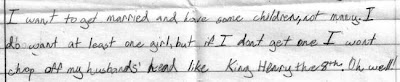 I want to get married and have some children, not many. I
do want at least one girl, but if I dont get one I wont
chop off my husbands' head like King Henry the 8th. Oh well!